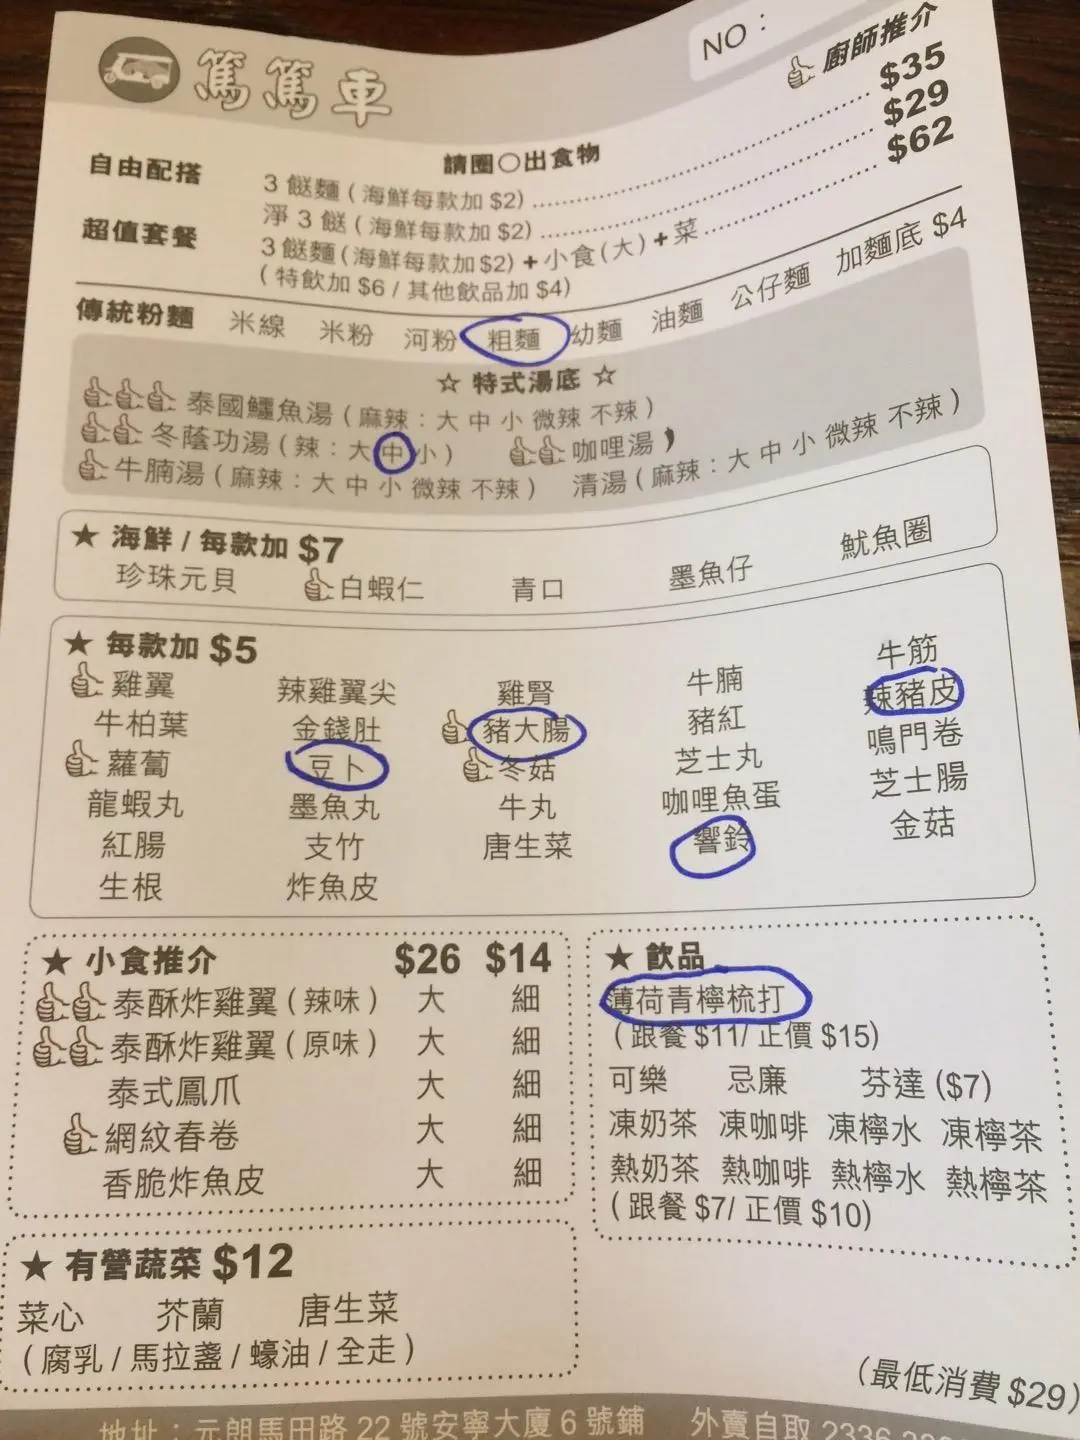 篤篤車
NO：
廚師推介
自由配搭
請圈○出食物
3 餸麵（海鮮每款加 $2）........ $35
淨 3 餸（海鮮每款加 $2）........ $29
超值套餐 3 餸麵（海鮮每款加$2）+小食（大）+菜........ $62
（特飲加 $6 / 其他飲品加 $4）
傳統粉麵 米線 米粉 河粉 粗麵 幼麵 油麵 公仔麵 加麵底 $4
☆ 特式湯底 ☆
泰國鱷魚湯（麻辣：大 中 小 微辣 不辣）
冬蔭功湯（辣：大 中 小） 咖哩湯
牛腩湯（麻辣：大 中 小 微辣 不辣） 清湯（麻辣：大 中 小 微辣 不辣）
★ 海鮮 / 每款加 $7
珍珠元貝 白蝦仁 青口 墨魚仔 魷魚圈
★ 每款加 $5
雞翼 辣雞翼尖 雞腎 牛腩 牛筋
牛柏葉 金錢肚 豬大腸 豬紅 辣豬皮
蘿蔔 豆卜 冬菇 芝士丸 鳴門卷
龍蝦丸 墨魚丸 牛丸 咖哩魚蛋 芝士腸
紅腸 支竹 唐生菜 響鈴 金菇
生根 炸魚皮
★ 小食推介 $26 $14
泰酥炸雞翼（辣味） 大 細
泰酥炸雞翼（原味） 大 細
泰式鳳爪 大 細
網紋春卷 大 細
香脆炸魚皮 大 細
★ 飲品
薄荷青檸梳打
（跟餐 $11/ 正價 $15）
可樂 忌廉 芬達 ($7)
凍奶茶 凍咖啡 凍檸水 凍檸茶
熱奶茶 熱咖啡 熱檸水 熱檸茶
（跟餐 $7/ 正價 $10）
★ 有營蔬菜 $12
菜心 芥蘭 唐生菜
（腐乳 / 馬拉盞 / 蠔油 / 全走）
（最低消費 $29）
地址：元朗馬田路 22 號安寧大廈 6 號鋪 外賣自取 2336